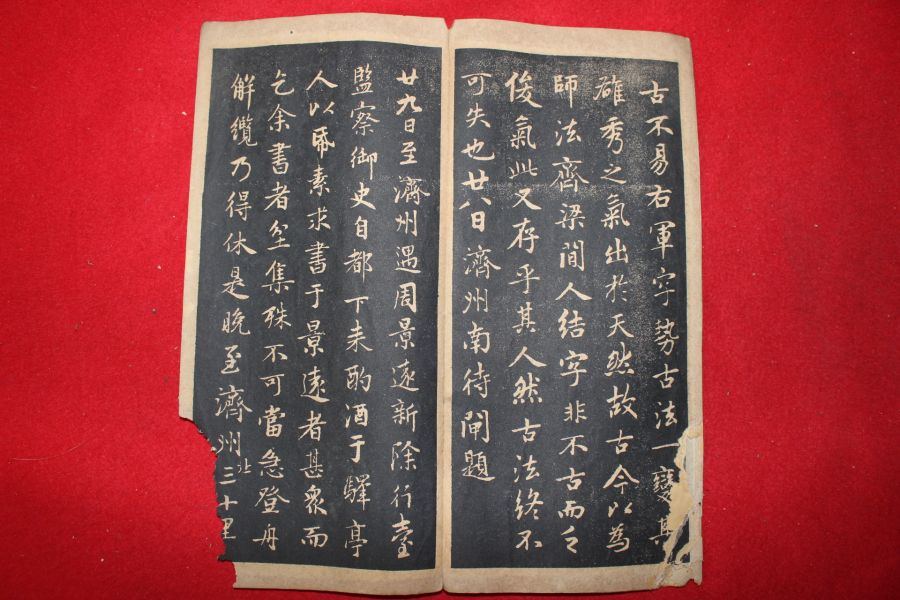 古不易右軍字勢古法一變其
雄秀之氣出於天然故古今以為
師法齊梁間人結字非不古而乏
俊氣此又存乎其人然古法終不
可失也廿八日濟州南待閘題
廿九日至濟州遇周景遠新除行臺
監察御史自都下來酌酒于驛亭
人以帋素求書于景遠者甚衆而
乞余書者坌集殊不可當急登舟
解纜乃得休是晚至濟州北三十里